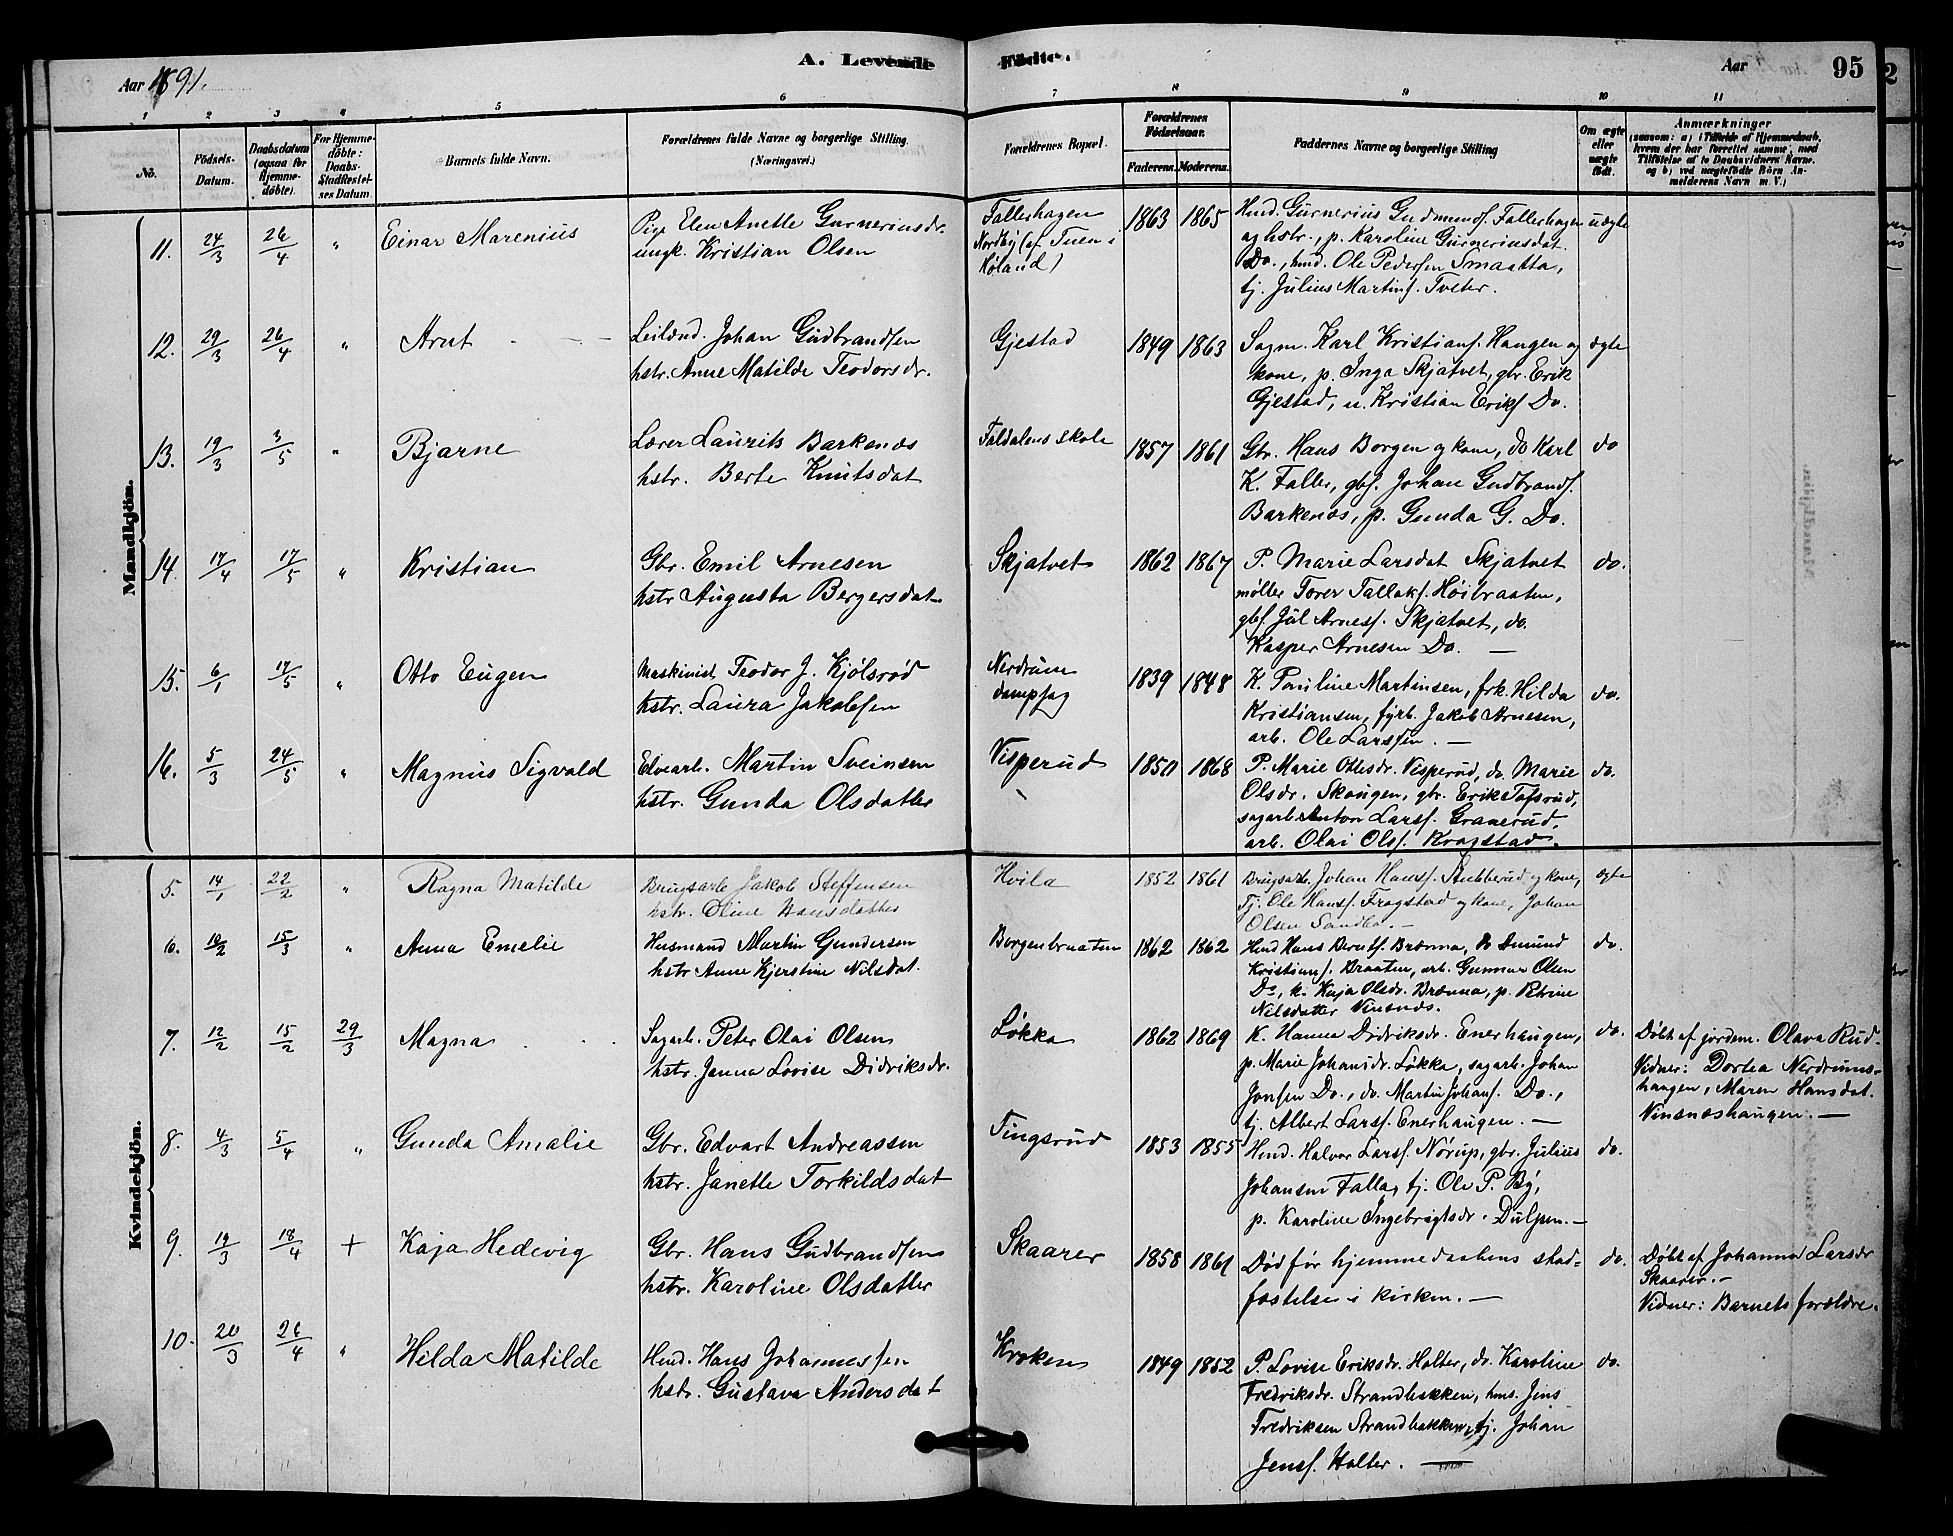 A. Levende Fødte.
Aar 1891.
Aar
95
1 2 3 4 5 6 7 8 9 10 11
No.
Fødsels-Datum.
Daabsdatum (ogsaa for Hjemmedöbte).
For Hjemmedöbte: Daabs-Stadfæstelses Datum
Barnets fulde Navn.
Forældrenes fulde Navne og borgerlige Stilling (Næringsvei.)
Forældrenes Bopæl.
Forældrenes Födselsaar.
Faderens. Moderens.
Faddernes Navne og borgerlige Stilling
Om ægte eller uægte født.
Anmærkninger
(saasom: a) i Tilfælde af Hjemmedaab, hvem der har forrettet samme, med Tilføielse af to Daabsvidners Navne. og b) ved uægtefödte Börn Anmelderens Navn m. V.)
Mandkjön.
11. 24/3 26/4 " Einar Marenius
Pige Elen Anette Gurneriusdr.
ungk. Kristian Olsen
Fallerhagen
Nordby (af Tuen i
Høland)
1863 1865
Hmd. Gurnerius Gudmunds. Fallerhagen
og hstr., p. Karoline Gurneriusdat.
Do., hmd. Ole Pedersen Smaatta,
tj. Julius Martins. Tveter.
uægte
12. 29/3 26/4 " Arnt
Leilænd. Johan Gudbrandsen
hstr. Anne Matilde Teodorsdr.
Gjestad
1849 1863
Sagm. Karl Kristians. Haugen og
kone, p. Inga Skjatvet, gbr. Erik
Gjestad, u. Kristian Eriks Do.
ægte
13. 19/3 3/5 " Bjarne
Lærer Laurits Barkenæs
hstr. Berte Knutsdat
Faldalens skole
1857 1861
Gbr. Hans Borgen og kone, do Karl
K. Faller, gbs. Johan Gudbrands.
Barkenæs, p. Gunda G. Do.
do
14. 17/4 17/5 " Kristian
Gbr. Emil Arnesen
hstr Augusta Bergersdat
Skjatvet
1862 1867
P. Marie Larsdat Skjatvet
møller Torer Tallaks. Høibraaten,
gbs. Jul Arness. Skjatvet, do.
Kasper Arnesen Do. —
do.
15. 6/1 17/5 " Otto Eugen
Maskinist Teodor J. Kjølsrød
hstr. Laura Jakobsen
Nerdrum
dampsag
1839 1848
K. Pauline Martinsen, frk. Hilda
Kristiansen, fyrb. Jakob Arnesen,
arb. Ole Larssen. —
do.
16. 5/3 24/5 " Magnus Sigvald
Elvearb. Martin Sveinsen
hstr. Gunda Olsdatter
Visperud
1850 1868
P. Marie Ottesdr. Visperud, do. Marie
Olsdr. Skaugen, gbr. Erik Tofsrud,
sagarb Anton Larss. Granerud,
arb. Olai Ols. Kragstad.
do.
Kvindekjön.
5. 14/1 22/2 " Ragna Matilde
Brugsarb Jakob Steffensen
hstr. Oline Hansdatter
Hvila
1852 1861
Brugsarb. Johan Hans. Stubberud og kone,
Tj. Ole Hans. Fragstad og kone, Johan
Olsen Sandbo. —
ægte
6. 10/2 15/3 " Anna Emelie
Husmand Martin Gundersen
hstr Anne Kjerstine Nilsdat.
Borgenbraaten
1862 1862
Hmd Hans Berntss. Brænna, do
Kristians. Braaten, arb. Gunnar Olsen
Do, k. Kaja Olsdr. Brænna, p. Petrine
Nilsdatter Vinsnæs.
do.
7. 12/2 15/2 29/3 Magna
Sagarb. Peter Olai Olsen
hstr. Janna Lovise Didriksdr.
Løkka
1862 1869
K. Hanna Didriksdr. Enerhaugen,
p. Marie Johansdr. Løkka, sagarb. Johan
Jonsen Do., do. Martin Johans. Do.,
tj. Albert Larss. Enerhaugen. —
do.
Døbt af jordem. Olava Rud.
Vidner: Dortea Nerdrums-
haugen, Maren Hansdat.
Vinsnæshaugen. —
8. 4/3 5/4 " Gunda Amalie
Gbr. Edvart Andreassen
hstr. Janette Torkildsdat
Tingsrud
1853 1855
Hmd. Halvor Larss. Nørup, gbr. Julius
Johansen Falla, tj. Ole P. By,
p. Karoline Ingebrigtsdr. Dulpen. —
do.
9. 19/3 18/4 + Kaja Hedevig
Gbr. Hans Gudbrandsen
hstr. Karoline Olsdatter
Skaarer
1858 1861
Død før hjemmedaabens stad-
fæstelse i kirken. —
do.
Døbt af Johanna Larsdr
Skaarer. —
Vidner: Barnets forældre.
10. 20/3 26/4 " Hilda Matilde
Hmd. Hans Johannessen
hstr. Gustava Andersdat
Kroken
1849 1852
P. Lovise Eriksdr. Holter, do. Karoline
Fredriksdr. Strandbakken, hms. Jens
Fredriksen Strandbakken, tj. Johan
Jenss. Holter. —
do.